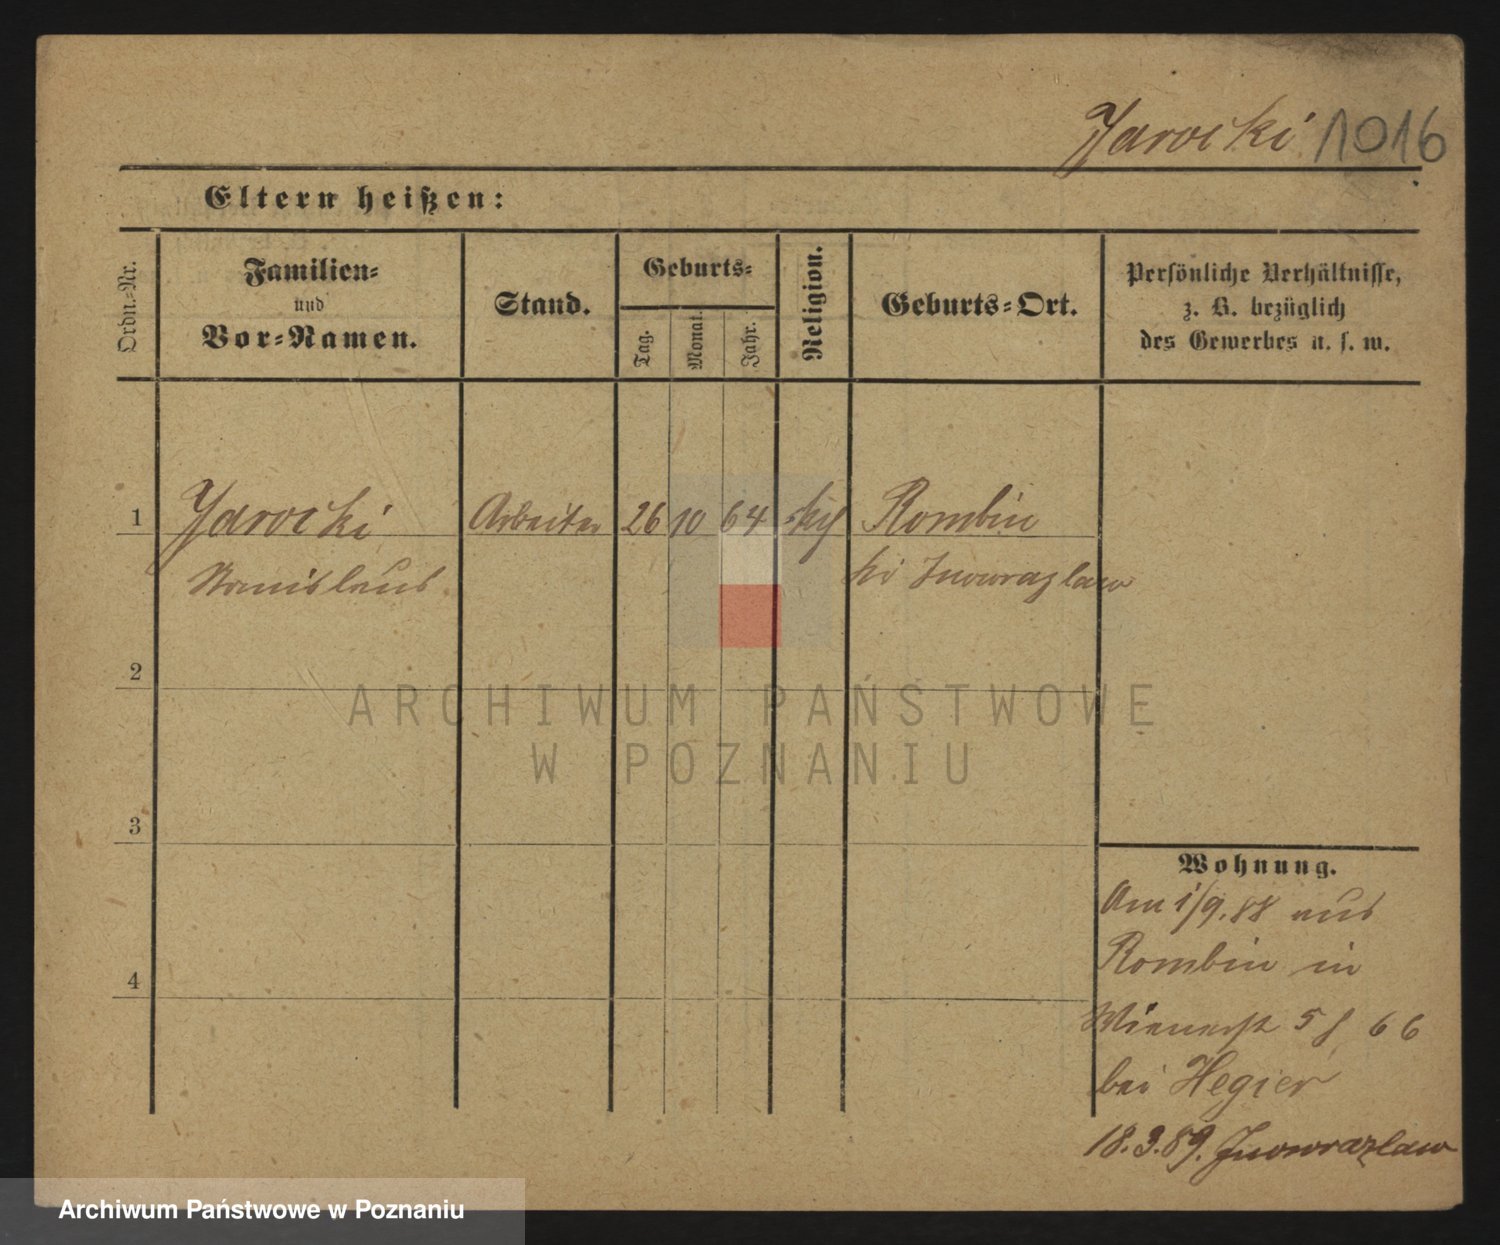 Jarocki 1016
Eltern heißen:
Ordn.-Nr.
Familien-
und
Vor-Namen.
Stand.
Geburts-
Tag.
Monat.
Jahr.
Religion.
Geburts-Ort.
Persönliche Verhältnisse,
z. B. bezüglich
des Gewerbes u. s. w.
1 Jarocki Arbeiter 26 10 64 kth Rombin
Stanislaus bei Inowrazlaw
2
ARCHIWUM PAŃSTWOWE
W POZNANIU
3
Wohnung.
Am 1/9.88 aus
Rombin in
4
Wienerst 5 66
bei Hegier
18.3.89. Inowrazlaw
Archiwum Państwowe w Poznaniu